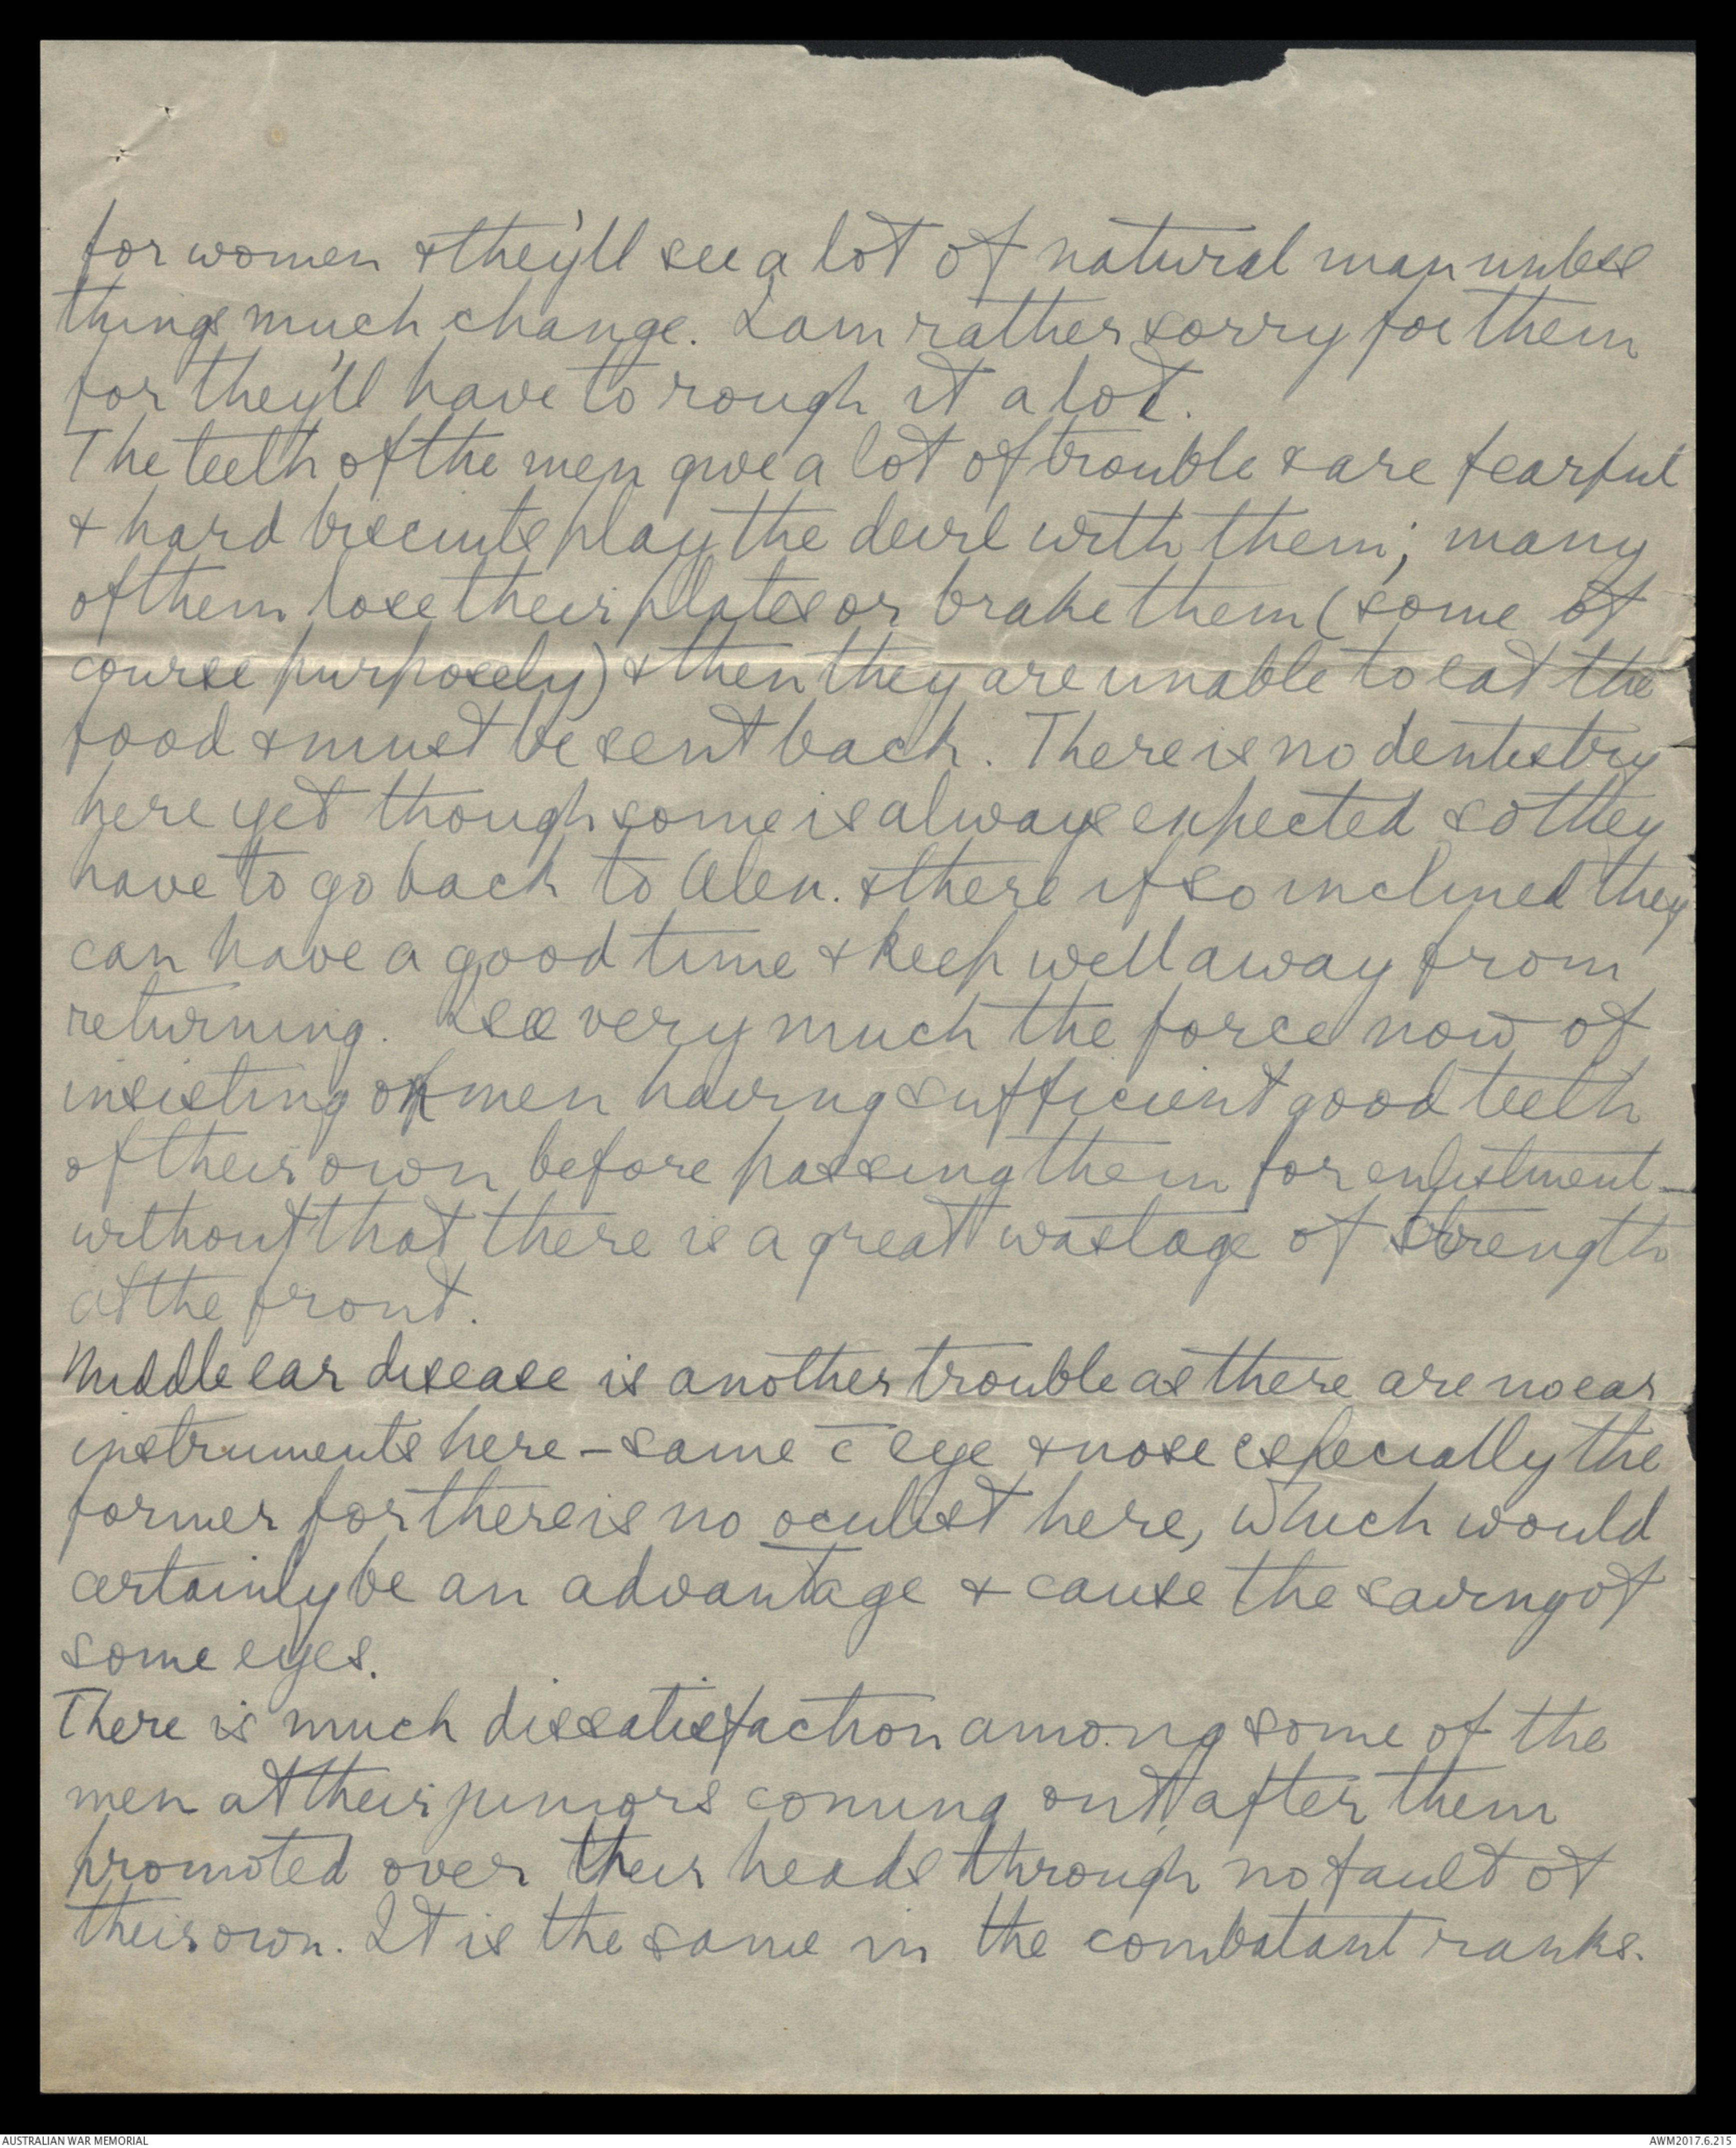 for women & they'll see a lot of natural man unless
things much change. I am rather sorry for them
for they'll have to rough it a lot.
The teeth of the men give a lot of trouble & are fearful
& hard biscuits play the devil with them; many
of them lose their plates or brake them (some of
course purposely) & then they are unable to eat the
food & must be sent back. There is no dentistry
here yet though some is always expected & so they
have to go back to Alex. & there if so inclined they
can have a good time & keep well away from
returning. I see very much the force now of
insisting on men having sufficient good teeth
of their own before passing them for enlistment –
without that there is a great wastage of strength
at the front.
Middle ear disease is another trouble as there are no ear
instruments here – same c̄ eye & nose especially the
former for there is no oculist here, which would
certainly be an advantage & cause the saving of
some eyes.
There is much dissatisfaction among some of the
men at their juniors coming out after them
promoted over their heads through no fault of
their own. It is the same in the combatant ranks.
AUSTRALIAN WAR MEMORIAL
AWM2017.6.215